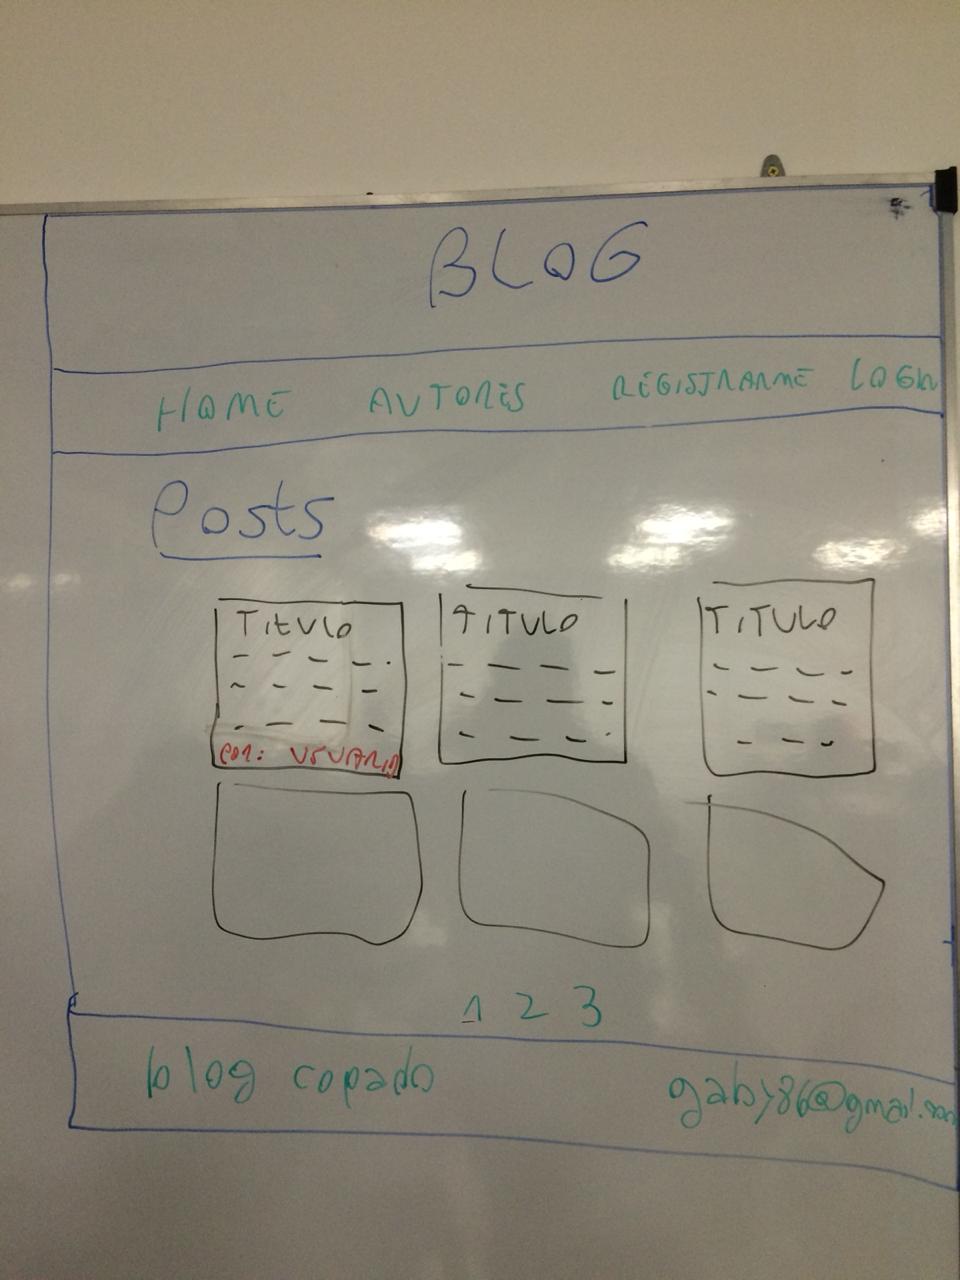 BLOG
HOME AUTORES REGISTRARME LOGIN
Posts
TITULO TITULO TITULO
POR: USUARIO
1 2 3
blog copado gaby86@gmail.com